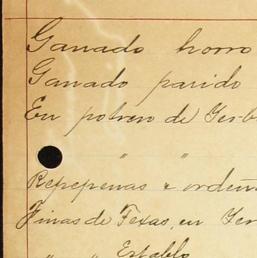 Ganado horro
Ganado parido
En potrero de Yerb
" "
y ordeñ
Finas de Texas, en Yer
" " Establo